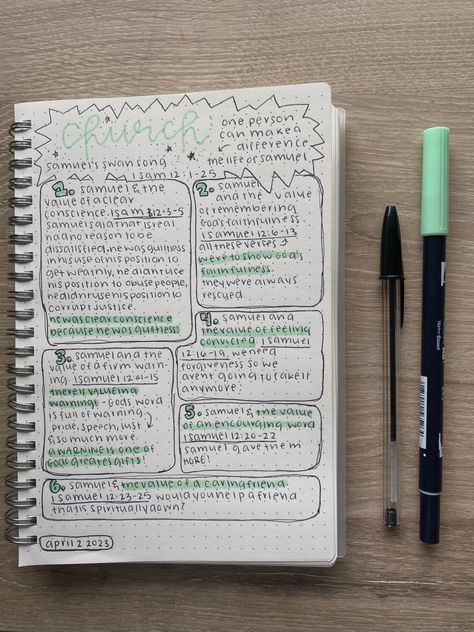 church:
samuel's swan song
1 sam 12:1-25
one person
can make a
difference
the life of samuel
1. samuel & the
value of a clear
conscience. 1 sam 12:3-5
samuel said that isreal
had no reason to be
dissatified, he was guiltless
in his use of his position to
get wealthy, he didnt use
his position to abuse people,
he didn use his position to
corrupt justice.
he was clear conscience
because he was guiltless!
2. samuel
and the value
of remembering
God's faithfulness
1 samuel 12:6-13
all these verses
were to show God's
faithfulness.
they were always
rescued.
3. samuel and the
value of a firm warn-
ing. 1 samuel 12:01-15
there is value in a
warning! - God's word
is full of warning,
pride, speech, lust
& so much more.
a WARNING is one of
Gods greatest gifts!
4. samuel and
the value of feeling
convicted. 1 samuel
12:16-19. we need
forgiveness so we
arent going to take it
anymore!
5. samuel & the value
of an encouraging word
1 samuel 12:20-22
samuel gave them
HOPE!
6. samuel & the value of a caring friend.
1 samuel 12:23-25 would you help a friend
that is spiritually down?
april 2 2023